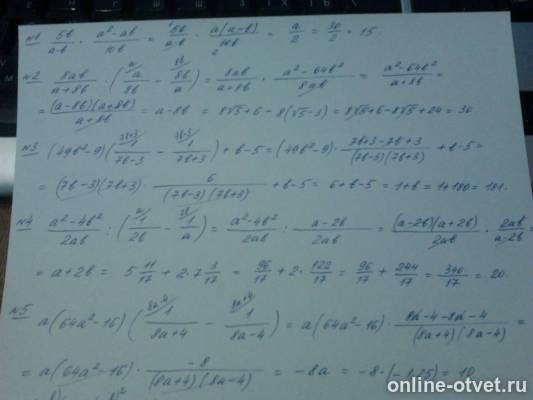 №1 5b/(a-b) · (a²-ab)/10b = 5b/(a-b) · a(a-b)/10b = a/2 = 30/2 = 15.
№2 8ab/(a+8b) · (a/8b - 8b/a) = 8ab/(a+8b) · (a²-64b²)/8ab = (a²-64b²)/(a+8b) =
= (a-8b)(a+8b)/(a+8b) = a-8b = 8√5+6-8(√5-3) = 8√5+6-8√5+24 = 30
№3 (49b²-9)(1/(7b-3) - 1/(7b+3)) + b-5 = (49b²-9) · (7b+3-7b+3)/((7b-3)(7b+3)) + b-5=
= (7b-3)(7b+3) · 6/((7b-3)(7b+3)) + b-5 = 6+b-5 = 1+b = 1+180 = 181.
№4 (a²-4b²)/2ab : (1/2b - 1/a) = (a²-4b²)/2ab : (a-2b)/2ab = (a-2b)(a+2b)/2ab · 2ab/(a-2b)
= a+2b = 5 11/17 + 2·7 3/17 = 96/17 + 2· 122/17 = 96/17 + 244/17 = 340/17 = 20.
№5 a(64a²-16)(1/(8a+4) - 1/(8a-4)) = a(64a²-16) · (8a-4-8a-4)/((8a+4)(8a-4)) =
= a(64a²-16) · -8/((8a+4)(8a-4)) = -8a = -8·(-1,25) = 10
online-otvet.ru